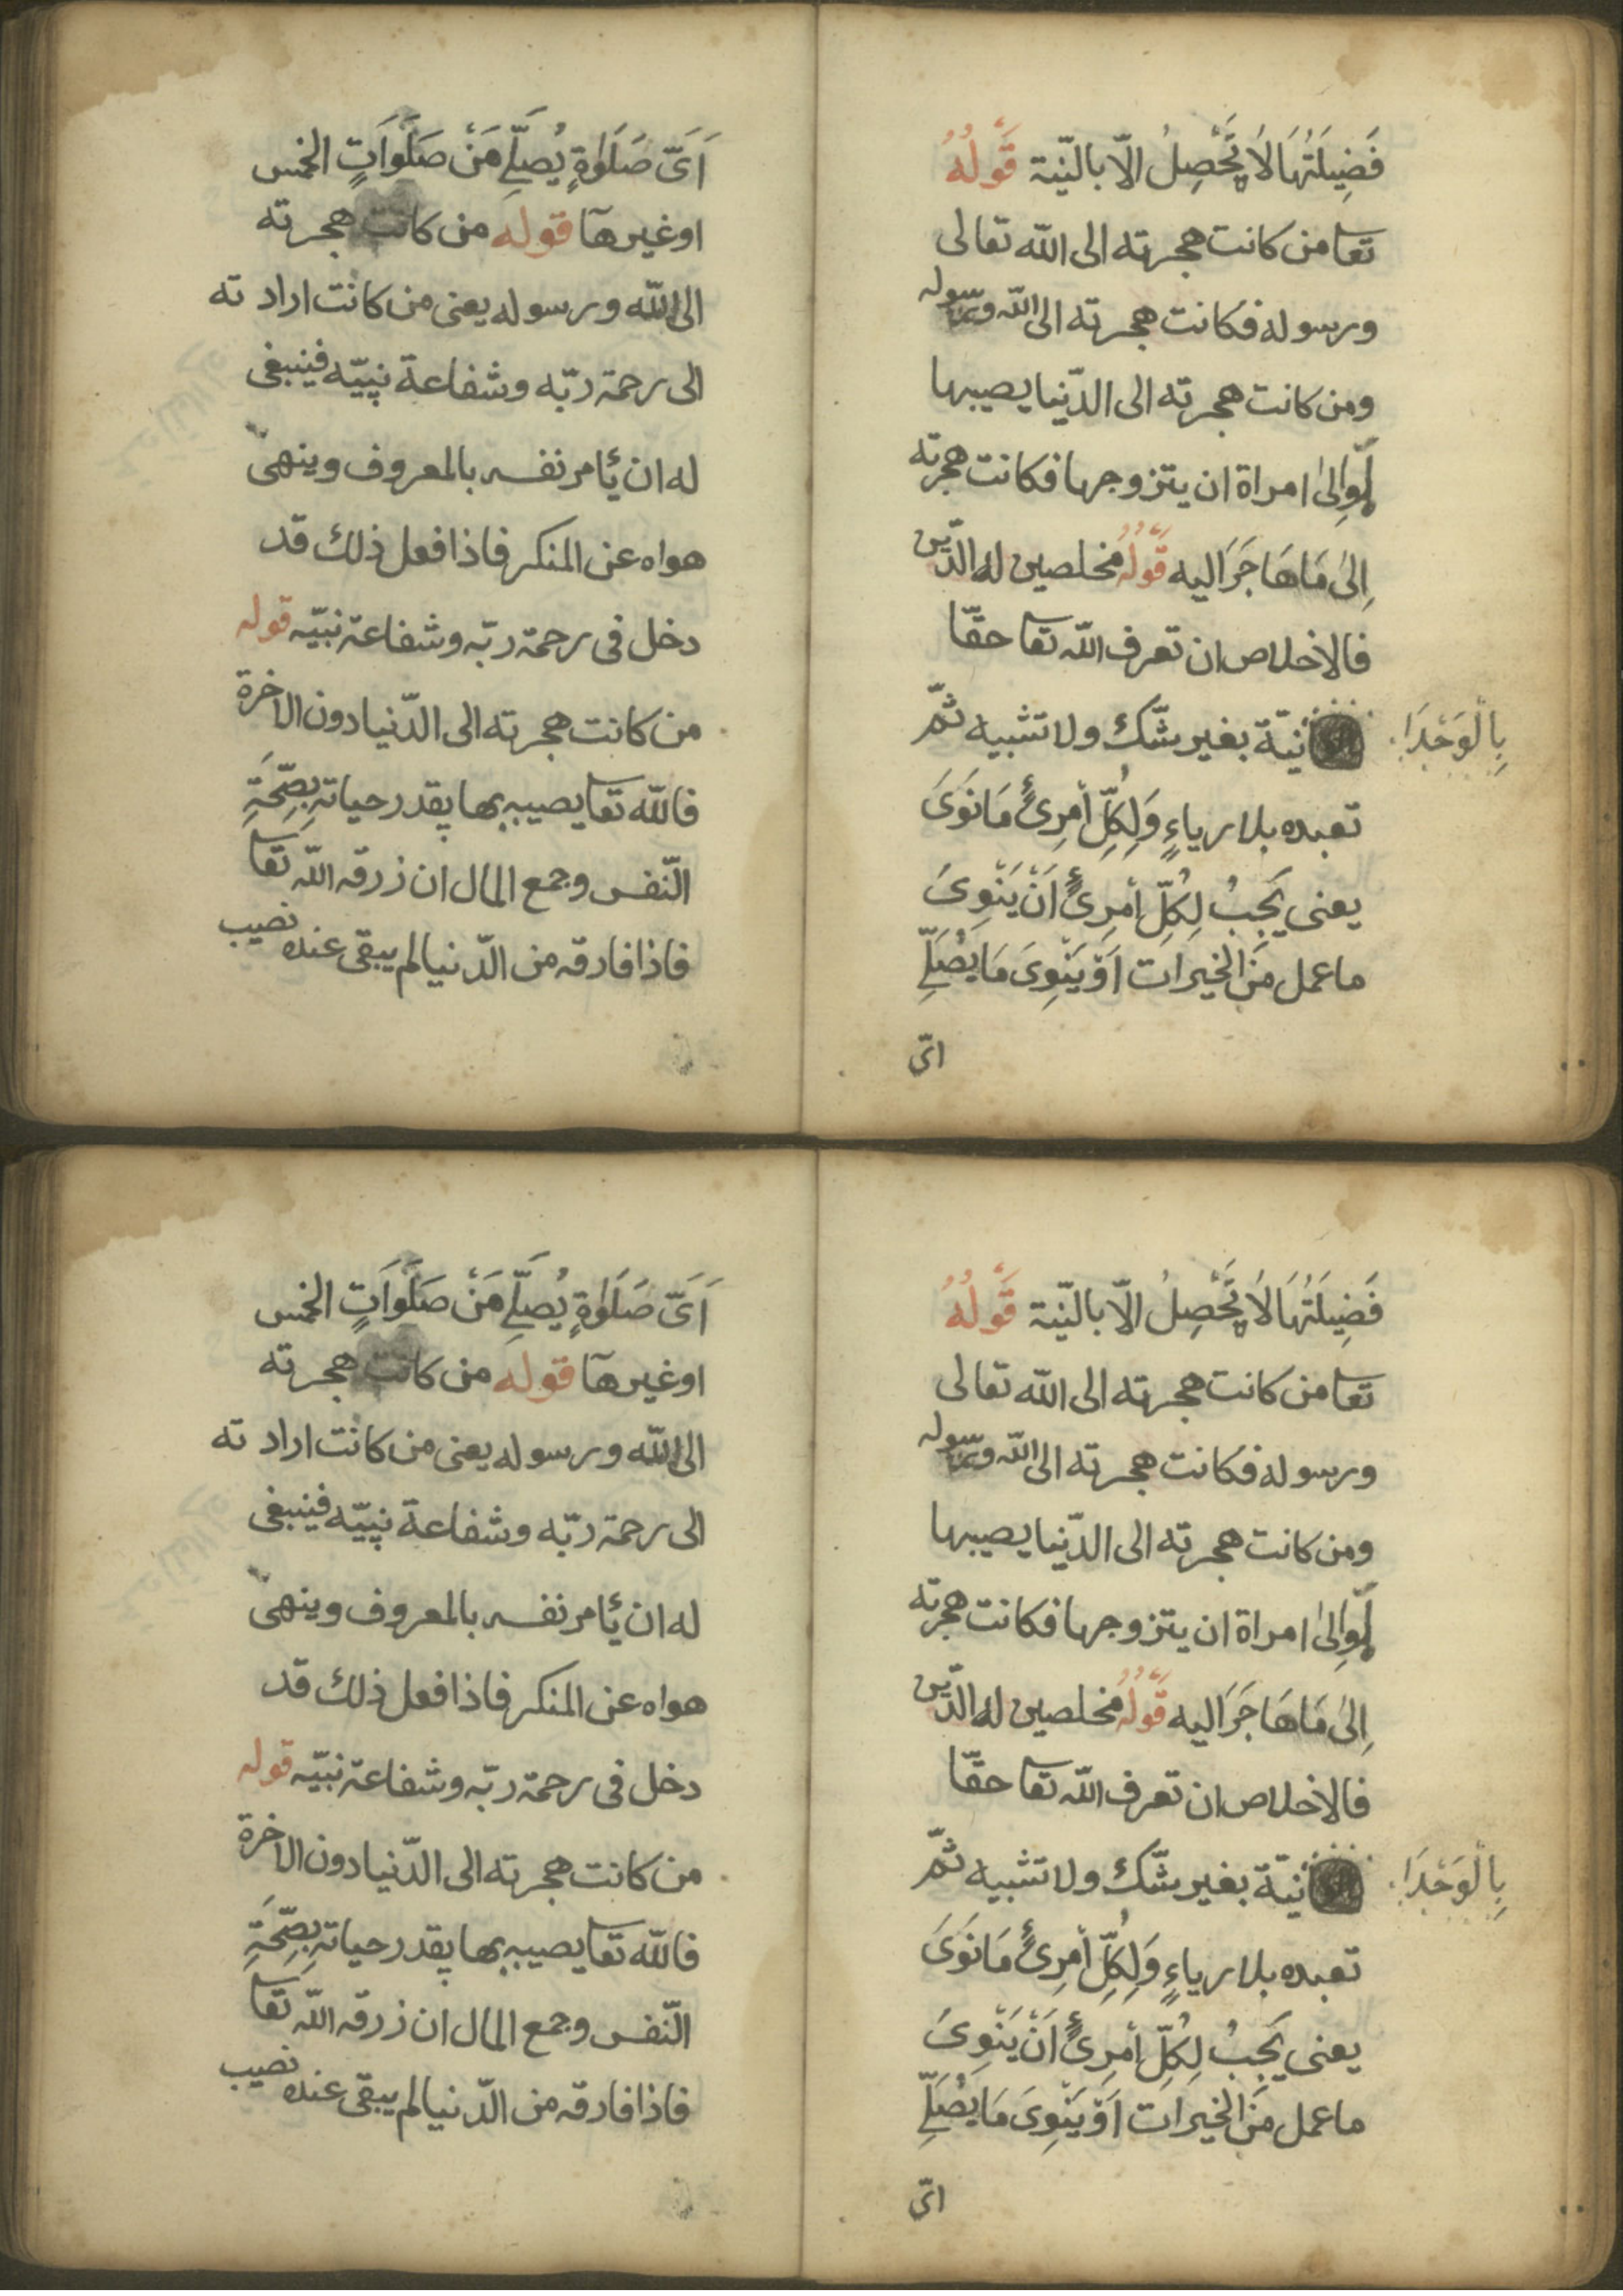 فَضِيلَتُهَا لَا يَحْصِلُ الّا بالنّية قَوْلُهُ
تعا من كانت هجرته الى الله تعالى
ورسوله فكانت هجرته الى الله ورسوله
ومن كانت هجرته الى الدّنيا يصيبها
اَوِالىٰ امراة ان يتزوجها فكانت هجرته
اِلىٰ مَا هَا جَرَ اليه قَوْلُهُ مخلصين له الدّين
فالاخلاص ان تعرف الله تعا حقّا
بِالْوَحْدَا
نيّة بغير شّك ولا تشبيه ثمّ
تعبده بلا رياءٍ وَلِكُلِّ اُمْرِئٍ مَا نَوَىَ
يعنى يَجِبُ لِكُلِّ اُمْرِئٍ اَنْ يَنْوِىَ
ما عمل مَنَ الخيرات اَوْ يَنْوِىَ مَا يُصَلِّے
اىّ
اَىَّ صَلَوٰةٍ يُصَلِّے مَنْ صَلَوَاتٍ الخمس
او غيرهآ قوله من كانت هجرته
الى الله ورسوله يعنى من كانت اراد ته
الى رحمة ربّه وشفاعة نبيّه فينبغى
له ان ئامر نفسه بالمعروف وينهى
هواه عن المنكر فاذا فعل ذلك قد
دخل فى رحمة ربّه وشفاعة نبيّه قوله
من كانت هجرته الى الدّنيا دون الاخرة
فالله تعا يصيبه بها بقدر حياته بِصِّحَةِ
النّفس وجمع المال ان زرقه الله تعا
فاذا فارقه من الدّنيا لم يبقى عنده نصيب
فَضِيلَتُهَا لَا يَحْصِلُ الّا بالنّية قَوْلُهُ
تعا من كانت هجرته الى الله تعالى
ورسوله فكانت هجرته الى الله ورسوله
ومن كانت هجرته الى الدّنيا يصيبها
اَوِالىٰ امراة ان يتزوجها فكانت هجرته
اِلىٰ مَا هَا جَرَ اليه قَوْلُهُ مخلصين له الدّين
فالاخلاص ان تعرف الله تعا حقّا
بِالْوَحْدَا
نيّة بغير شّك ولا تشبيه ثمّ
تعبده بلا رياءٍ وَلِكُلِّ اُمْرِئٍ مَا نَوَىَ
يعنى يَجِبُ لِكُلِّ اُمْرِئٍ اَنْ يَنْوِىَ
ما عمل مَنَ الخيرات اَوْ يَنْوِىَ مَا يُصَلِّے
اىّ
اَىَّ صَلَوٰةٍ يُصَلِّے مَنْ صَلَوَاتٍ الخمس
او غيرهآ قوله من كانت هجرته
الى الله ورسوله يعنى من كانت اراد ته
الى رحمة ربّه وشفاعة نبيّه فينبغى
له ان ئامر نفسه بالمعروف وينهى
هواه عن المنكر فاذا فعل ذلك قد
دخل فى رحمة ربّه وشفاعة نبيّه قوله
من كانت هجرته الى الدّنيا دون الاخرة
فالله تعا يصيبه بها بقدر حياته بِصِّحَةِ
النّفس وجمع المال ان زرقه الله تعا
فاذا فارقه من الدّنيا لم يبقى عنده نصيب